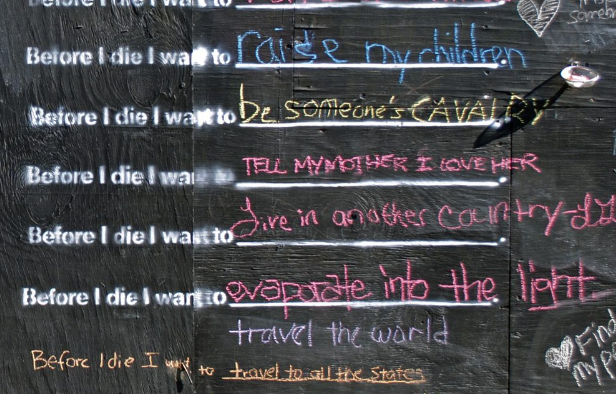 Before I die I want to
Before I die I want to raise my children
Before I die I want to be someone's CAVALRY
Before I die I want to TELL MY MOTHER I LOVE HER
Before I die I want to Live in another country-
Before I die I want to evaporate into the light
travel the world
Before I die I want to travel to all the states
Find
my